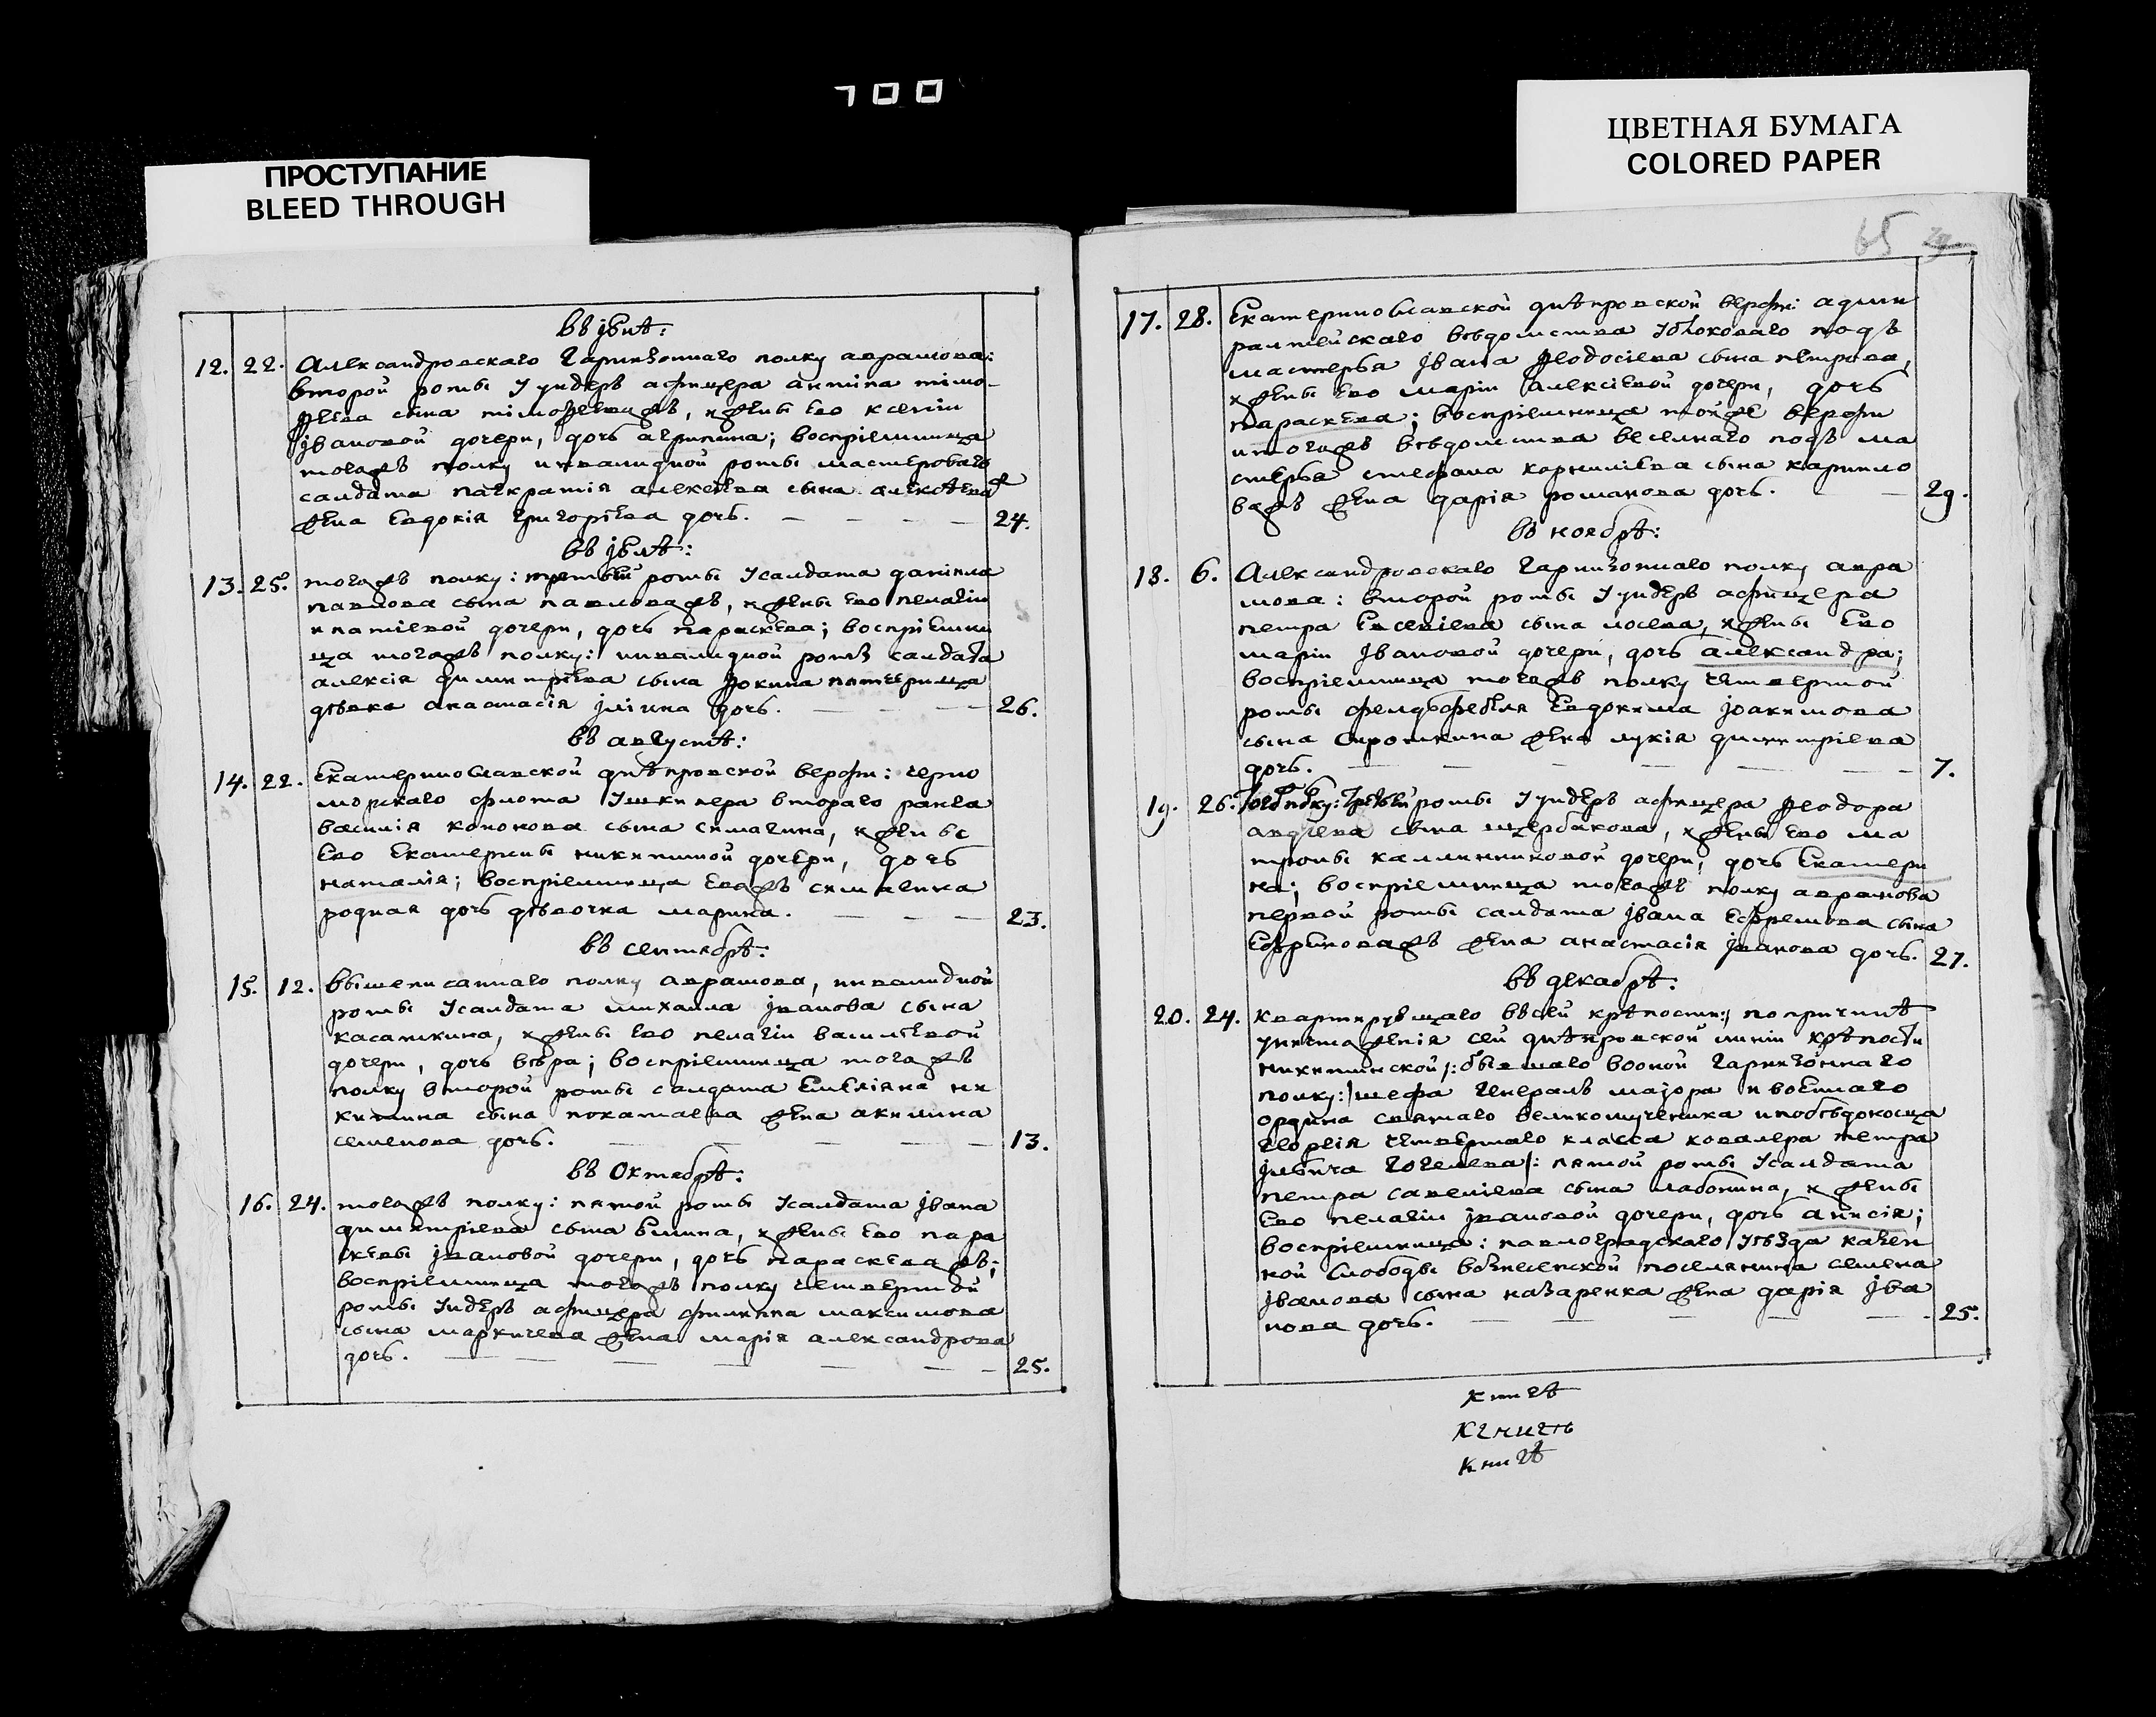 700
ПРОСТУПАНИЕ
BLEED THROUGH
ЦВЕТНАЯ БУМАГА
COLORED PAPER
въ
12. 22. Александровскаго гарнизоннаго полку аврамова:
второй роты Ѹундеръ афицера антипа тімо-
ѳеева сына тімоѳеева жъ, и жены ево ксеніи
јвановой дочери, дочь агрипина; воспріемница
тогожъ полку инвалидной роты мастероваго
салдата панкратія алексеева сына алексѣева
жена евдокія григоріева дочь. 24.
въ
13. 25. тогожъ полку: третьей роты Ѹсалдата даніила
павлова сына павловажъ, и жены ево пелагіи
ипатіевой дочери, дочь параскева; воспріемни
ца тогожъ полку: инвалидной роты салдата
алексія димитріева сына ѳокина
дѣвка анастасія јліина дочь. 26.
въ августѣ:
14. 22. Екатеринославской днѣпровской верфи: черно
морскаго флота Ѹшкипера втораго ранга
василія кононова сына симагина, и жены
ево екатерины никитиной дочери, дочь
наталія; воспріемница евожъ симагина
родная дочь дѣвочка марина. 23.
въ сентябрѣ:
15. 12. вышеписаннаго полку аврамова, инвалидной
роты Ѹсалдата михаила јванова сына
касаткина, и жены ево пелагіи василіевой
дочери, дочь вѣра; воспріемница тогожъ
полку второй роты салдата емеліяна ни
китина сына покатаева жена акилина
семенова дочь. 13.
въ октябрѣ:
16. 24. тогожъ полку: пятой роты Ѹсалдата јвана
димитріева сына, и жены ево пара
скевы јвановой дочери, дочь параскева жъ;
воспріемница тогожъ полку четвертой
роты Ѹндеръ афицера филипа максимова
сына маркичева жена марія александрова
дочь. 25.
65
17. 28. Екатеринославской днѣпровской верфи: адми
ралтейскаго вѣдомства Ѹблоковаго подъ
мастерья јвана ѳеодосіева сына петрова,
и жены ево маріи алексіевой дочери, дочь
параскева; воспріемница тойже верфи
итогожъ вѣдомства веселнаго подъ ма
стерья стефана корниліева сына
жена дарія романова дочь. 29.
въ ноябрѣ:
18. 6. Александровскаго гарнизоннаго полку авра
мова: второй роты Ѹундеръ афицера
петра евсевіева сына лосева, и жены ево
маріи јвановой дочери, дочь александра;
воспріемница тогожъ полку четвертой
роты фелдьфебеля евдокима јоакимова
сына сироткина жена лукія димитріева
дочь. 7.
19. 26. тогожъ полку: третьей роты Ѹундеръ афицера ѳеодора
авдіева сына щербакова, и жены ево ма
троны каллинниковой дочери, дочь екатери
на; воспріемница тогожъ полку аврамова
первой роты салдата јвана ефремова сына
жена анастасія јванова дочь. 27.
въ декабрѣ:
20. 24. квартирующаго въсей крѣпости: попричинѣ
уничтоженія сей днѣпровской линіи крѣпости
никитинской: бывшаго вооной гарнизоннаго
полку: шефа генералъ маіора и военнаго
ордина святаго великомученика ипобѣдоносца
георгія четвертаго класса ковалера петра
јльича: пятой роты Ѹсалдата
петра савеліева сына, и жены
ево пелагіи јвановой дочери, дочь анисія;
воспріемница: павлоградскаго Ѹѣзда казен
ной слободы вознесенской поселянина семена
јванова сына назаренка жена дарія јва
нова дочь. 25.
книгѣ
книгѣ